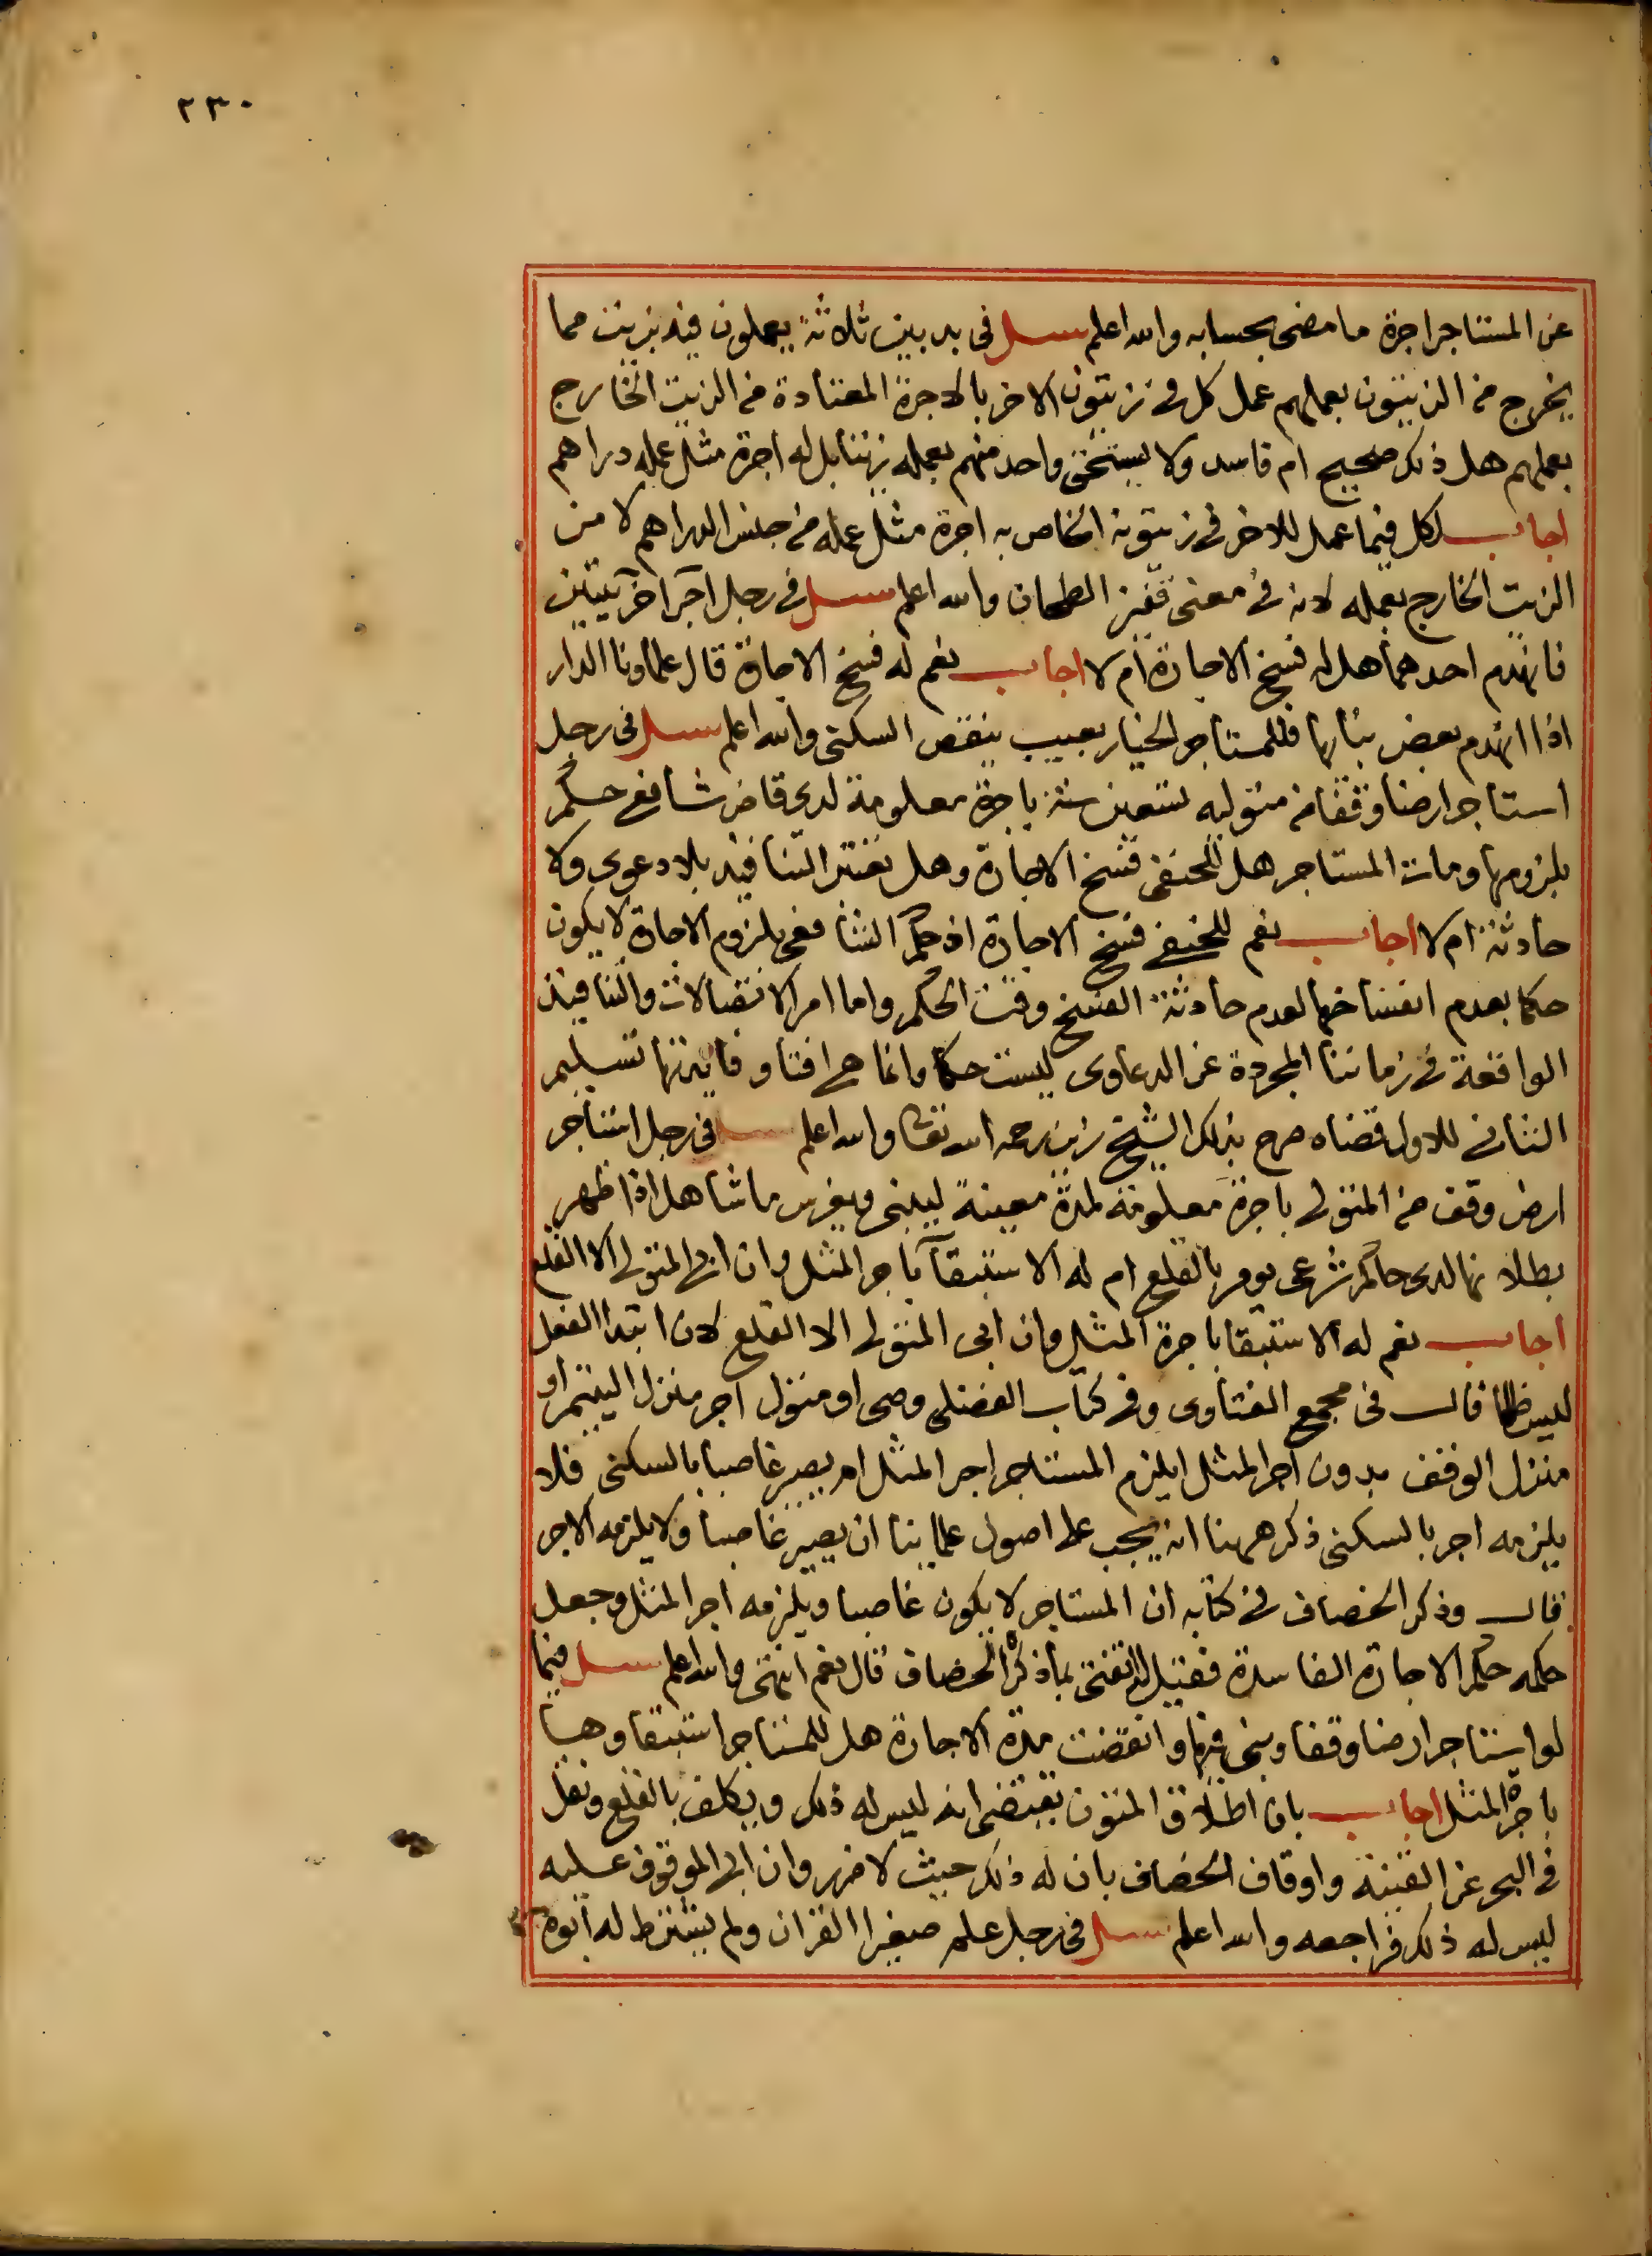 ٢٣٠
عن المستاجر اجرة ما مضى بحسابه والله اعلم سئل فى بد بين ثلاثة يعملون فيه بزيت مما
يخرج من الزيتون بعملهم عمل كل فى زيتون الاخر بالاجرة المعتادة من الزيت الخارج
بعملهم هل ذلك صحيح ام فاسد ولا يستحق واحد منهم بعمله زيتا بل له اجرة مثل عمله دراهم
اجاب لكل فيما عمل للاخر فى زيتونه الخاص به اجرة مثل عمله من جنس الدراهم لا من
الزيت الخارج بعمله لانه فى معنى قفيز الطحان والله اعلم سئل فى رجل آجر آخر بيتين
فانهدم احدهما هل له فسخ الاجارة ام لا اجاب نعم له فسخ الاجارة قال علماونا الدار
اذا انهدم بعض بنائها فللمستاجر الخيار بعيب ينقص السكنى والله اعلم سئل فى رجل
استاجر ارضا وقفا من متوليه تسعين سنة باجرة معلومة لدى قاض شافعى حكم
بلزومها ومات المستاجر هل للحنفى فسخ الاجارة وهل تعتبر التنافيذ بلا دعوى ولا
حادثة ام لا اجاب نعم للحنفى فسخ الاجارة اذ حكم الشافعى بلزوم الاجارة لا يكون
حكما بعدم انفساخها لعدم حادثة الفسخ وقت الحكم واما امر الاتصالات والتنافيذ
الواقعة فى زماننا المجردة عن الدعاوى ليست حكما وانما هى افتا وفايدتها تسليم
الثانى للاول قضاه صرح بذلك الشيخ زين رحمه الله تعالى والله اعلم سئل فى رجل استاجر
ارض وقف من المتولى باجرة معلومة لمدة معينة ليبنى ويغرس ما شا هل اذا ظهر
بطلانها لدى حاكم شرعى يومر بالقلع ام له الاستبقآ باجر المثل وان ابى المتولى الا القلع
اجاب نعم له الاستبقا باجرة المثل وان ابى المتولى الا القلع لان ابتدا الفعل
ليس ظلما قال فى مجمع الفتاوى وفى كتاب الفضلى وصى او متول اجر منزل اليتيم او
منزل الوقف بدون اجر المثل ايلزم المستاجر اجر المثل ام يصير غاصبا بالسكنى فلا
يلزمه اجر بالسكنى ذكر ههنا انه يجب على اصول علمائنا ان يصير غاصبا ولا يلزمه الاجر
قال وذكر الخصاف فى كتابه ان المستاجر لا يكون غاصبا ويلزمه اجر المثل وجعل
حكمه حكم الاجارة الفاسدة فقيل له اتفتى بما ذكره الخصاف قال نعم انتهى والله اعلم سئل فيما
لو استاجر ارضا وقفا وبنى فيها وانقضت مدة الاجارة هل للمستاجر استبقاوها
باجرة المثل اجاب بان اطلاق المتون يقتضى انه ليس له ذلك ويكلف بالقلع ونقل
فى البحر عن القنية واوقاف الخصاف بان له ذلك حيث لا ضرر وان ابى الموقوف عليه
ليس له ذلك فراجعه والله اعلم سئل فى رجل علم صغيرا القران ولم يشترط له ابوه